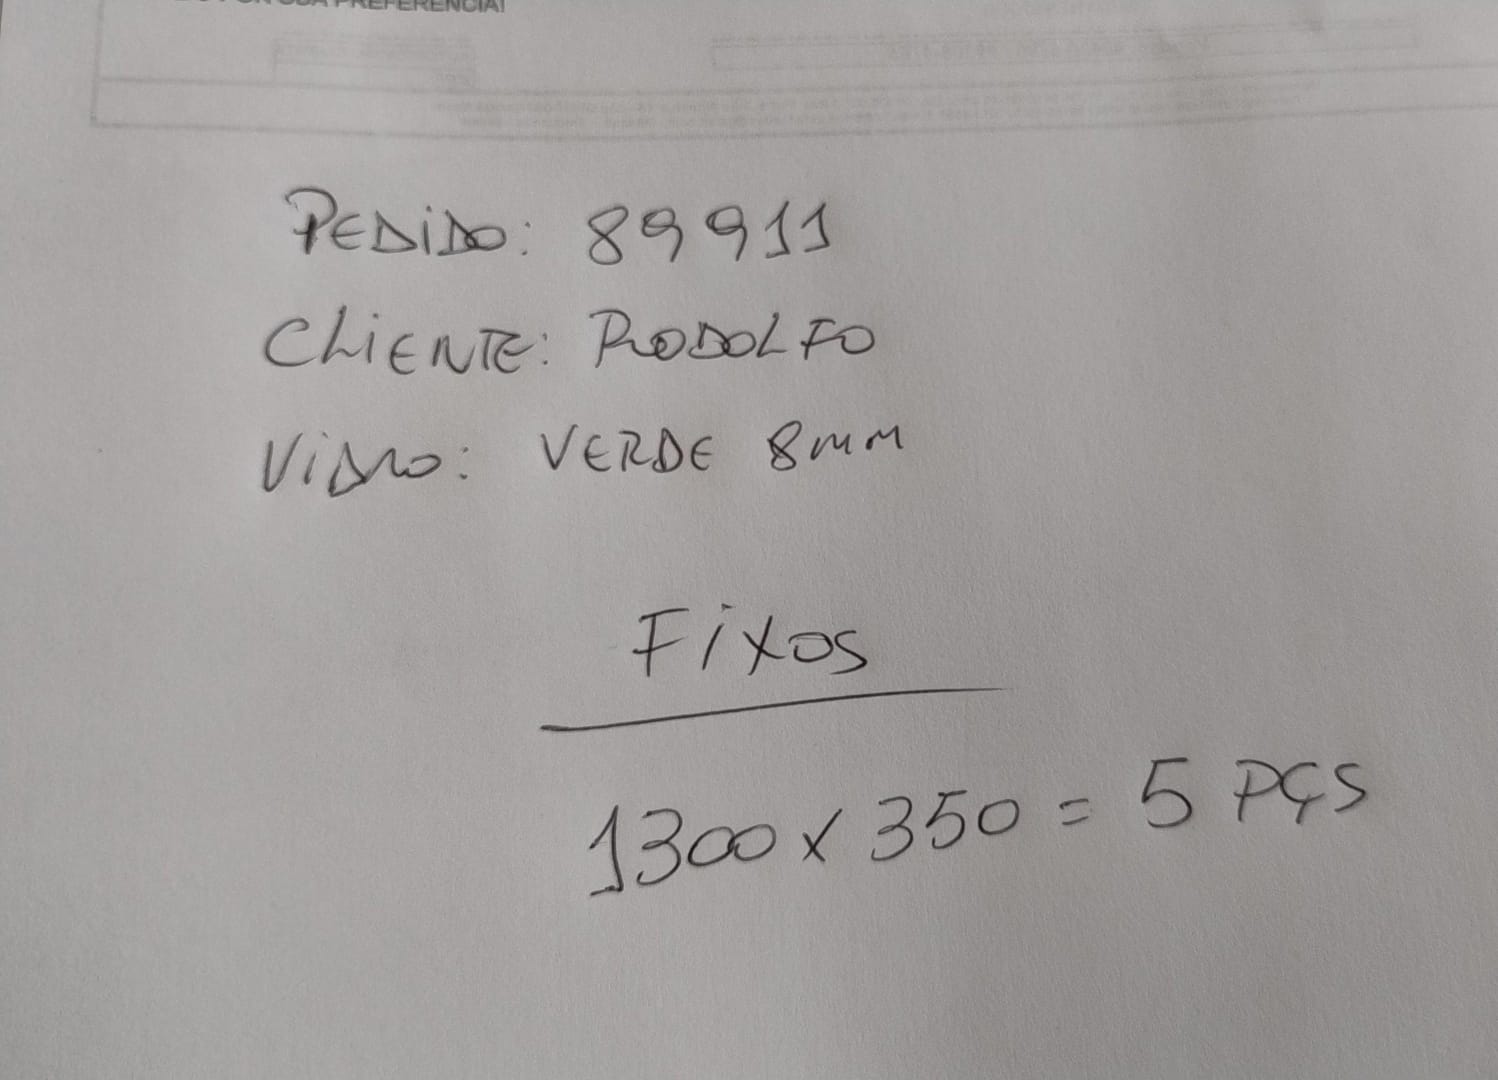 PREFERENCIA!
PEDiDO: 89911
CLiENTE: RODOLFO
ViDRO: VERDE 8mm
FiXOS
1300 x 350 = 5 PÇS